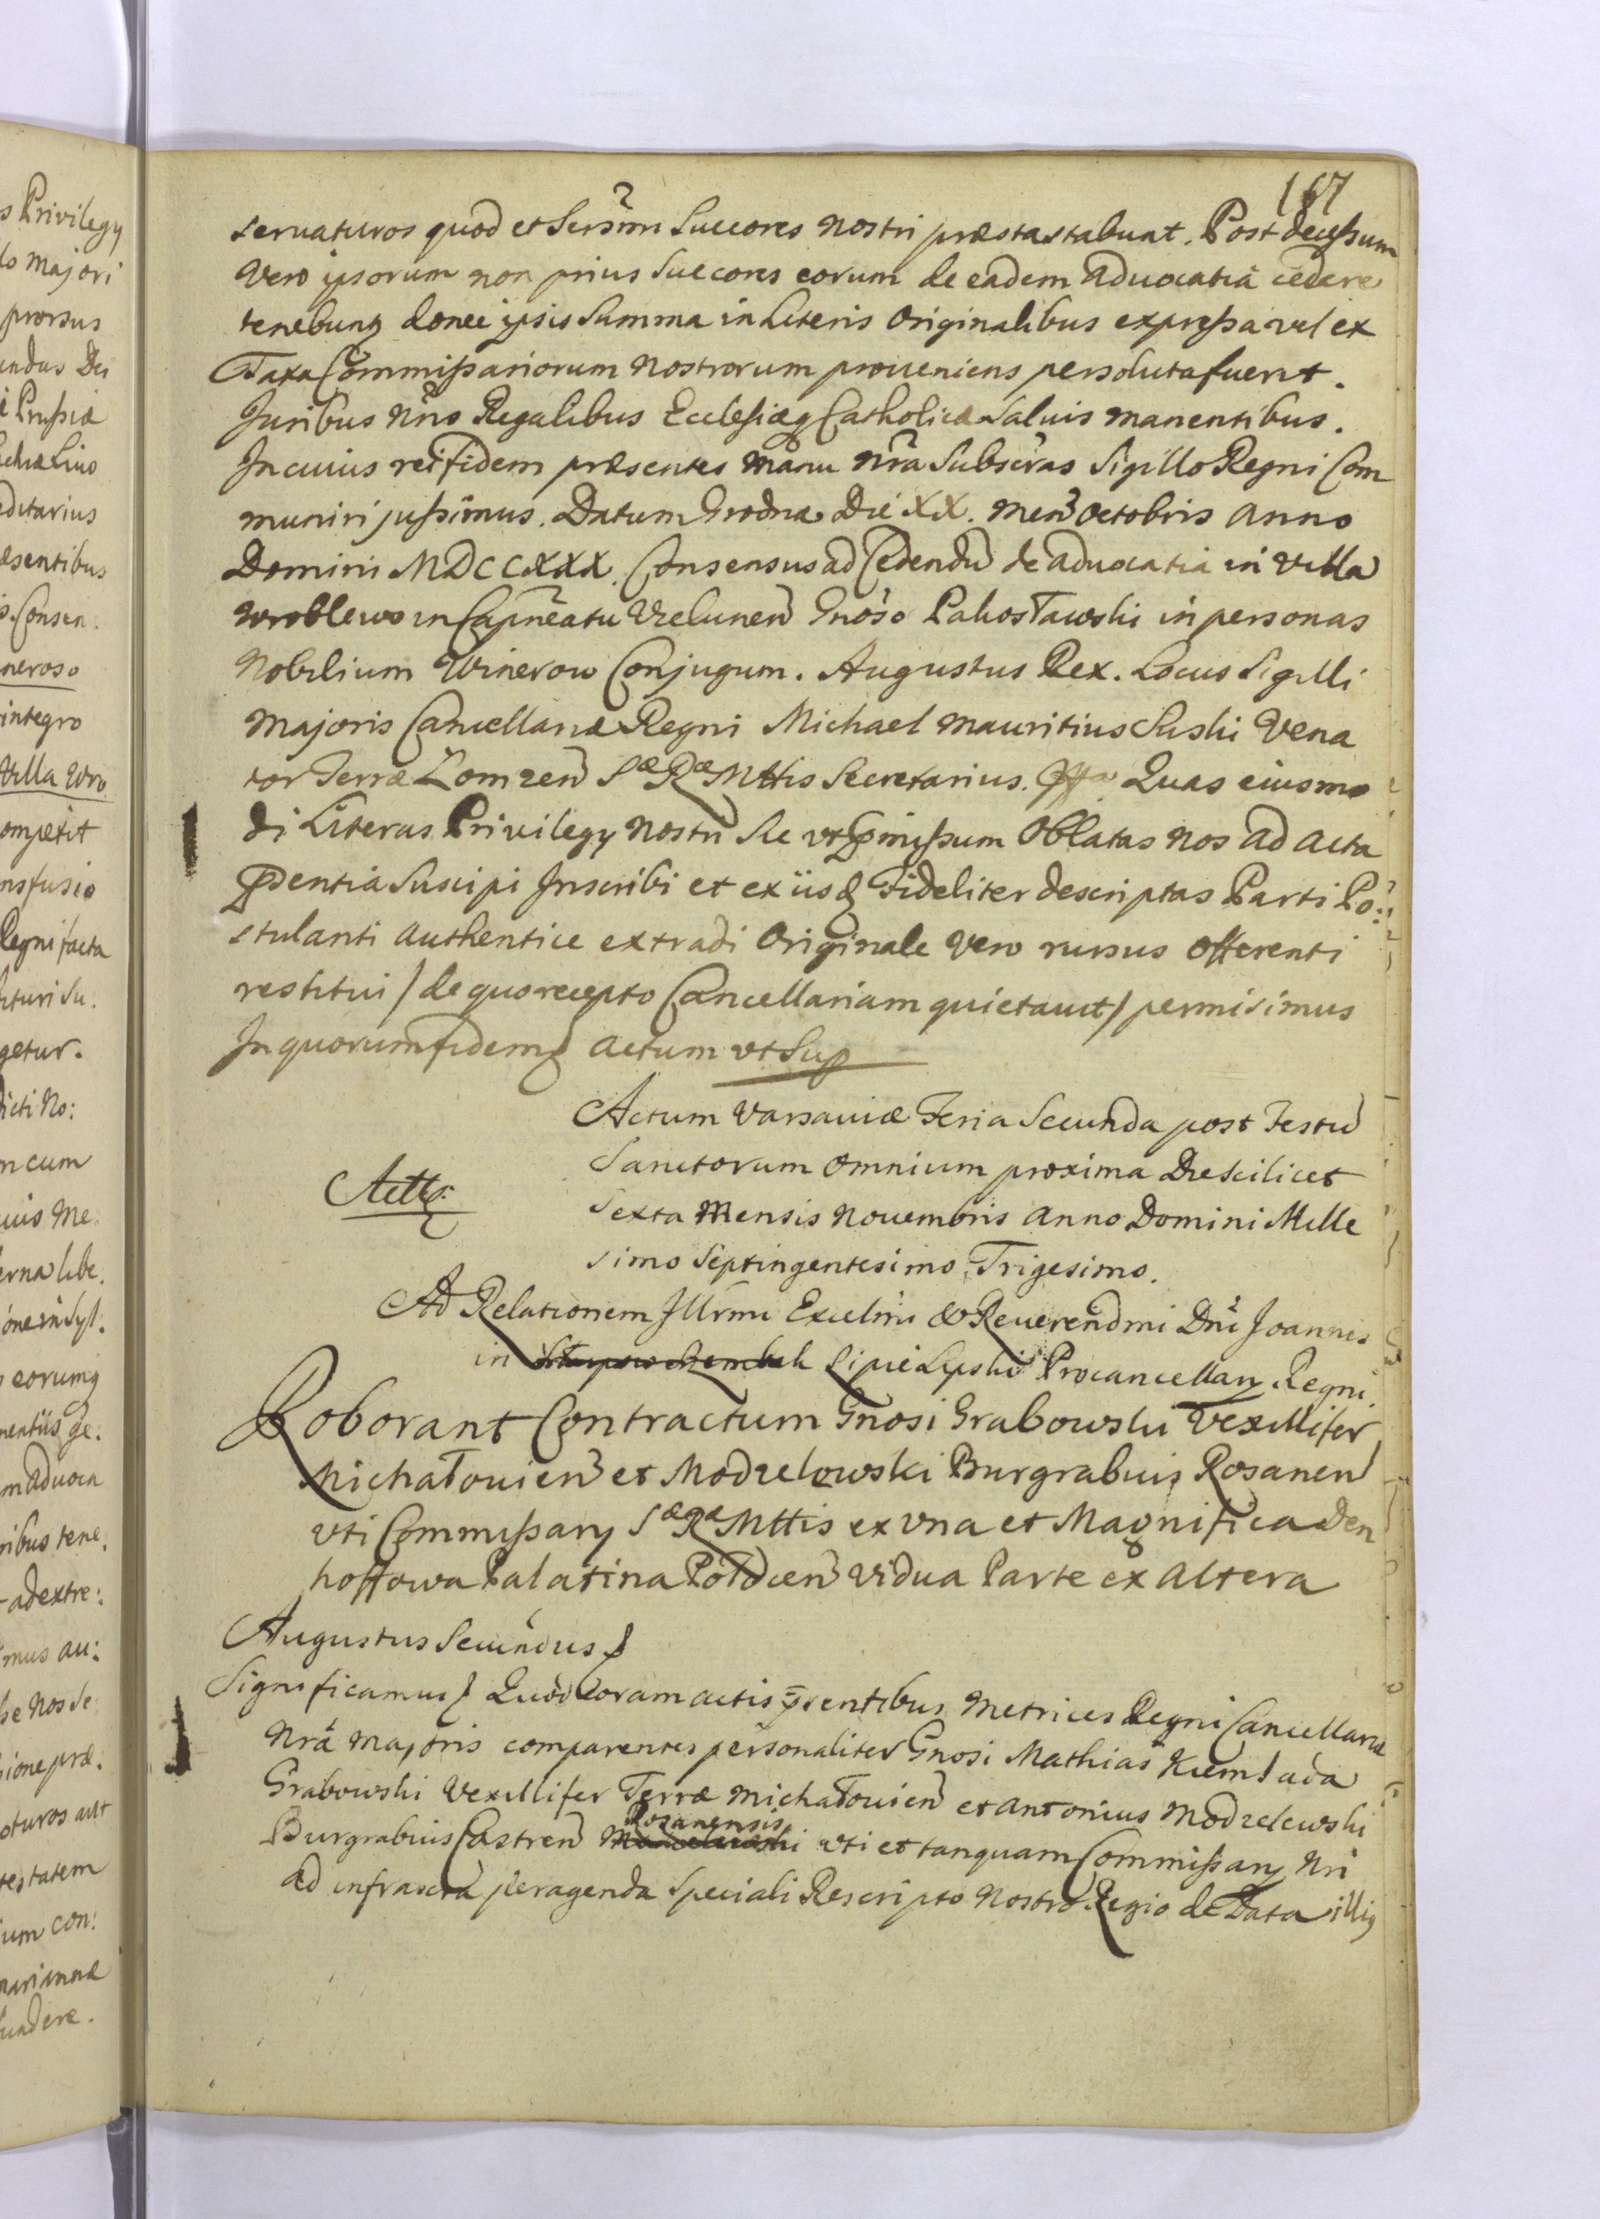 167
servaturos quod et Sersmi Succores Nostri præstastabunt. Post decessum
Vero ipsorum non prius Succores eorum de eadem Advocatia cedere
tenebunt donec ipsis Summa in Literis Originalibus expressa vel ex
Taxa Commissariorum Nostrorum proveniens persoluta fuerit.
Juribus Nris Regalibus Ecclesiæq Catholicæ Salvis manentibus.
In cuius rei fidem præsentes manu Nra Subscras Sigillo Regni Com
muniri jussimus. Datum Grodnæ Die XX. Mens Octobris Anno
Domini MDCCXXX. Consensus ad Cedendū de Advocatia in Villa
Wroblewo in Capneatu Vielunen Gnoso Pakosławski in personas
Nobilium Winerow Conjugum. Augustus Rex. Locus Sigilli
Majoris Cancellariæ Regni Michael Mauritius Suski Vena
tor Terræ Łomzen Sæ Ræ Mttis Secretarius. Quas eiusmo
di Literas Privilegy Nostri Sic vt pmissum Oblatas Nos ad Acta
pdentia Suscipi Inscribi et ex iisq Fideliter descriptas Parti Po:
stulanti Authentice extradi Originale Vero rursus Offerenti
restitui / de quo recepto Cancellariam quietavit / permisimus
In quorum fidem Actum vt Sup
Actum Varsaviæ Feria Secunda post Festū
Sanctorum Omnium proxima Die Scilicet
Sexta Mensis Novembris Anno Domini Mille
simo Septingentesimo Trigesimo.
Ad Relationem Illrmi Excelmi & Reverendmi Dni Joannis
in Lipie Lipski Procancellary Regni
Roborant Contractum Gnosi Grabowski Vexillifer
Michałovien et Modzelowski Burgrabius Rosanen
vti Commissary Sæ Ræ Mttis ex vna et Magnifica Den
hoffowa Palatina Połocen Vidua Parte ex Altera
Augustus Secundus
Significamus Quod Coram Actis prentibus Metrices Regni Cancellariæ
Nræ Majoris comparentes personaliter Gnosi Mathias Kiemlada
Grabowski Vexillifer Terræ Michałovien et Antonius Modzelewski
Rosanensis
Burgrabius Castren vti et tanquam Commissary Nri
ad infrascra peragenda Speciali Rescripto Nostro Regio de Data illiq